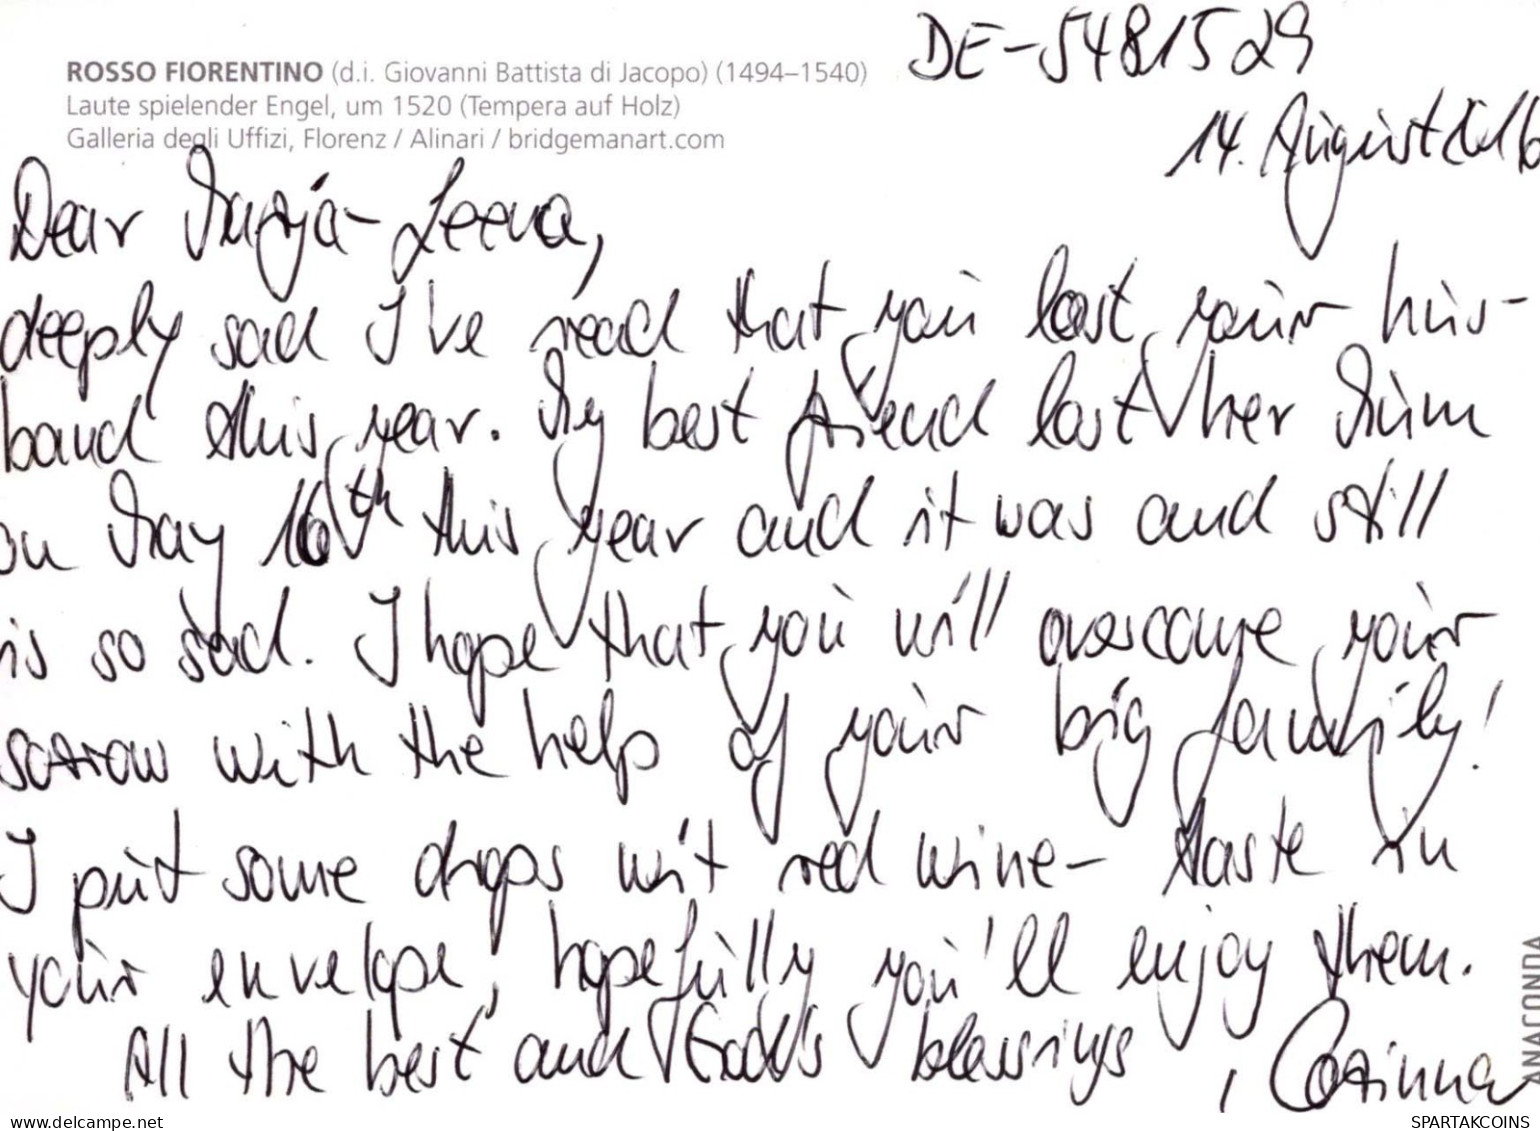 ROSSO FIORENTINO (d.i. Giovanni Battista di Jacopo) (1494–1540)
Laute spielender Engel, um 1520 (Tempera auf Holz)
Galleria degli Uffizi, Florenz / Alinari / bridgemanart.com
DE-5481529
14. August 2016
Dear Marja-Leena,
deeply sad I've read that you lost your hus-
band this year. My best friend lost her Mum
on May 16th this year and it was and still
is so sad. I hope that you will overcome your
sorrow with the help of your big family!
I put some drops wit red wine- taste in
your envelope, hopefully you'll enjoy them.
All the best and God's blessings, Corinna
ANACONDA
www.delcampe.net
SPARTAKCOINS